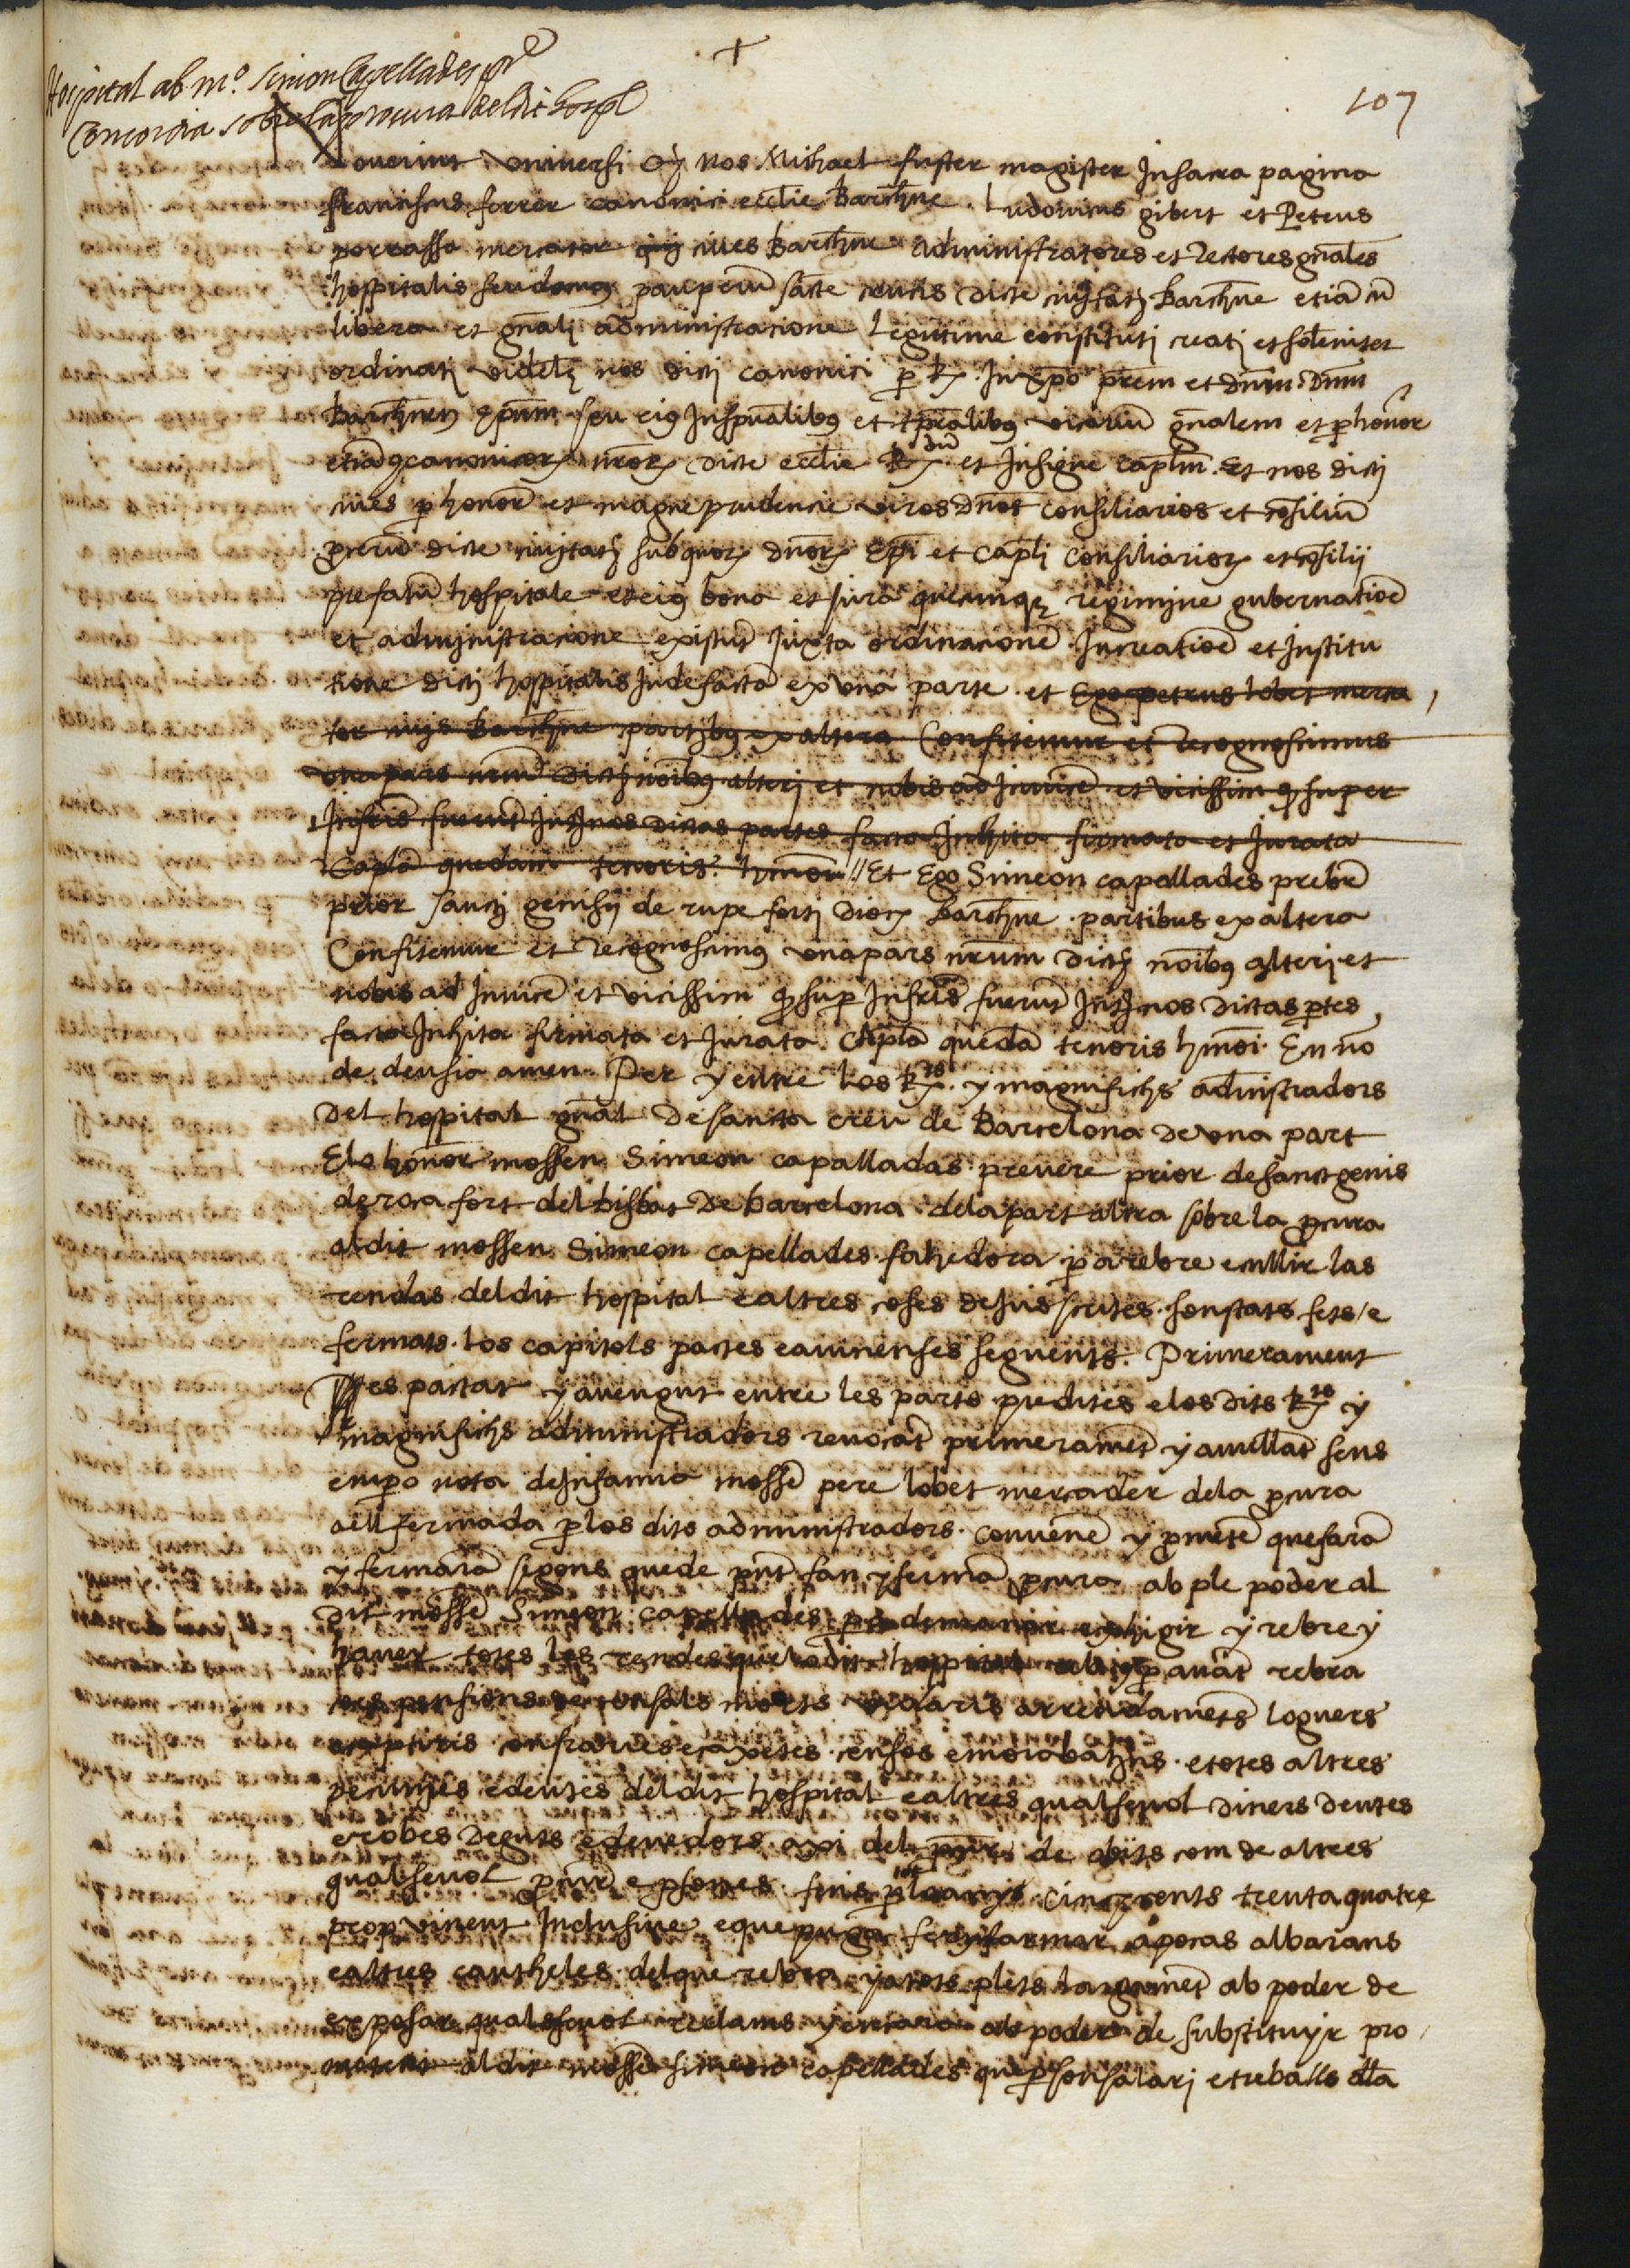 +
107
Hospital ab mº. Simon Capellades pre
Concordia sobre la procura del dit hospl
Noverint universi q nos Michael fuster magister In sacra pagina
franciscus ferrer canonici ecclie Barchne. Ludovicus gibert et Petrus
porrassa mercator cives Barchne administratores et rectores gnales
hospitalis seu domus pauperu sacte crucis dicte civitatis Barchne etia cu
libera et gnali administracione legitime constituti creati et solemniter
ordinati videlz nos dicti canonici p R. In xpo prem et dnum dnm
Barchnen Epum seu eius In spualibus et tpralibus vicariu gnalem et p honor
etia canonicor nror dicte ecclie R.du et Insigne capłm. Et nos dicti
cives p honor et magne prudencie viros dnos consiliarios et cosiliu
procru dicte civitatis sub quor dnor Epi et capli consiliarior et cosilii
prefatu hospitale et eius bona et jura quecunq regimine gubernatioe
et administracione existut Juxta ordinacione In creatioe et Institu
tione dicti hospitalis Inde facta ex una parte et Ego petrus lobet merca
tor civis Barchne partibus ex altera Confitemur et recognoscimus
una pars nrum dictis noibus alteri et nobis ad Invice et vicissim q super
Infris fuerut Inter nos dictas partes facta Inhita firmata et Jurata
Capla quedam tenoris hmoi // Et Ego Simeon capellades prebre
prior sancti genisii de rupe forti dioc Barchne partibus ex altera
Confitemur et recognoscimus una pars nrum dictis noibus alteri et
nobis ad Invice et vicissim q sup Infris fuerut Inter nos dictas ptes
facta Inhita firmata et Jurata. Capla queda tenoris hmoi. En no
de deu sia amen. Per y entre los R.ts y magnifichs administradors
del hospital gnal de sancta creu de Barcelona de una part
E lo honor mossen Simeon capalladas prevere prior de sanct genis
de roca fort del bisbat de barcelona de la part altra sobre la pcura
al dit mossen Simeon capellades fahedora p a rebre e cullir las
rendas del dit hospital e altres coses dejus scrites. son stats fets / e
fermats los capitols pactes e avinenses seguents. Primerament
es pactat y avengut entre les parts predites e los dits R.ts y
magnifichs administradors revocat primeramet y anullat sens
empo nota de Infamia mosse pere lobet mercader de la pcura
a ell fermada p los dits administradors. convene y pmete que fara
y fermara segons que de pnt fan y ferma pcura ab ple poder al
dit mosse Simeon capellades p a demanar exhigir y rebre y
haver totes les rendes que lo dit hospital p avat rebra
es pensions de censals morts violaris arrendamets loguers
confraries e caxetes. censos e morabatins. e totes altres
pecunies e deutes del dit hospital e altres qualsevol diners deutes
e robes deguts e devedors axi del de abits com de altres
qualsevol e psones. fins p tot lany cinchcents trenta quatre
prop vinent Inclusive e que puga fer y fermar apocas albarans
e altres cautheles del que rebra y a tots plets largamet ab poder de
exposar qualsevol reclams y encara ab poder de substituyr pro
meteni al dit mosse Simeon capellades que p son salari e treballs dla